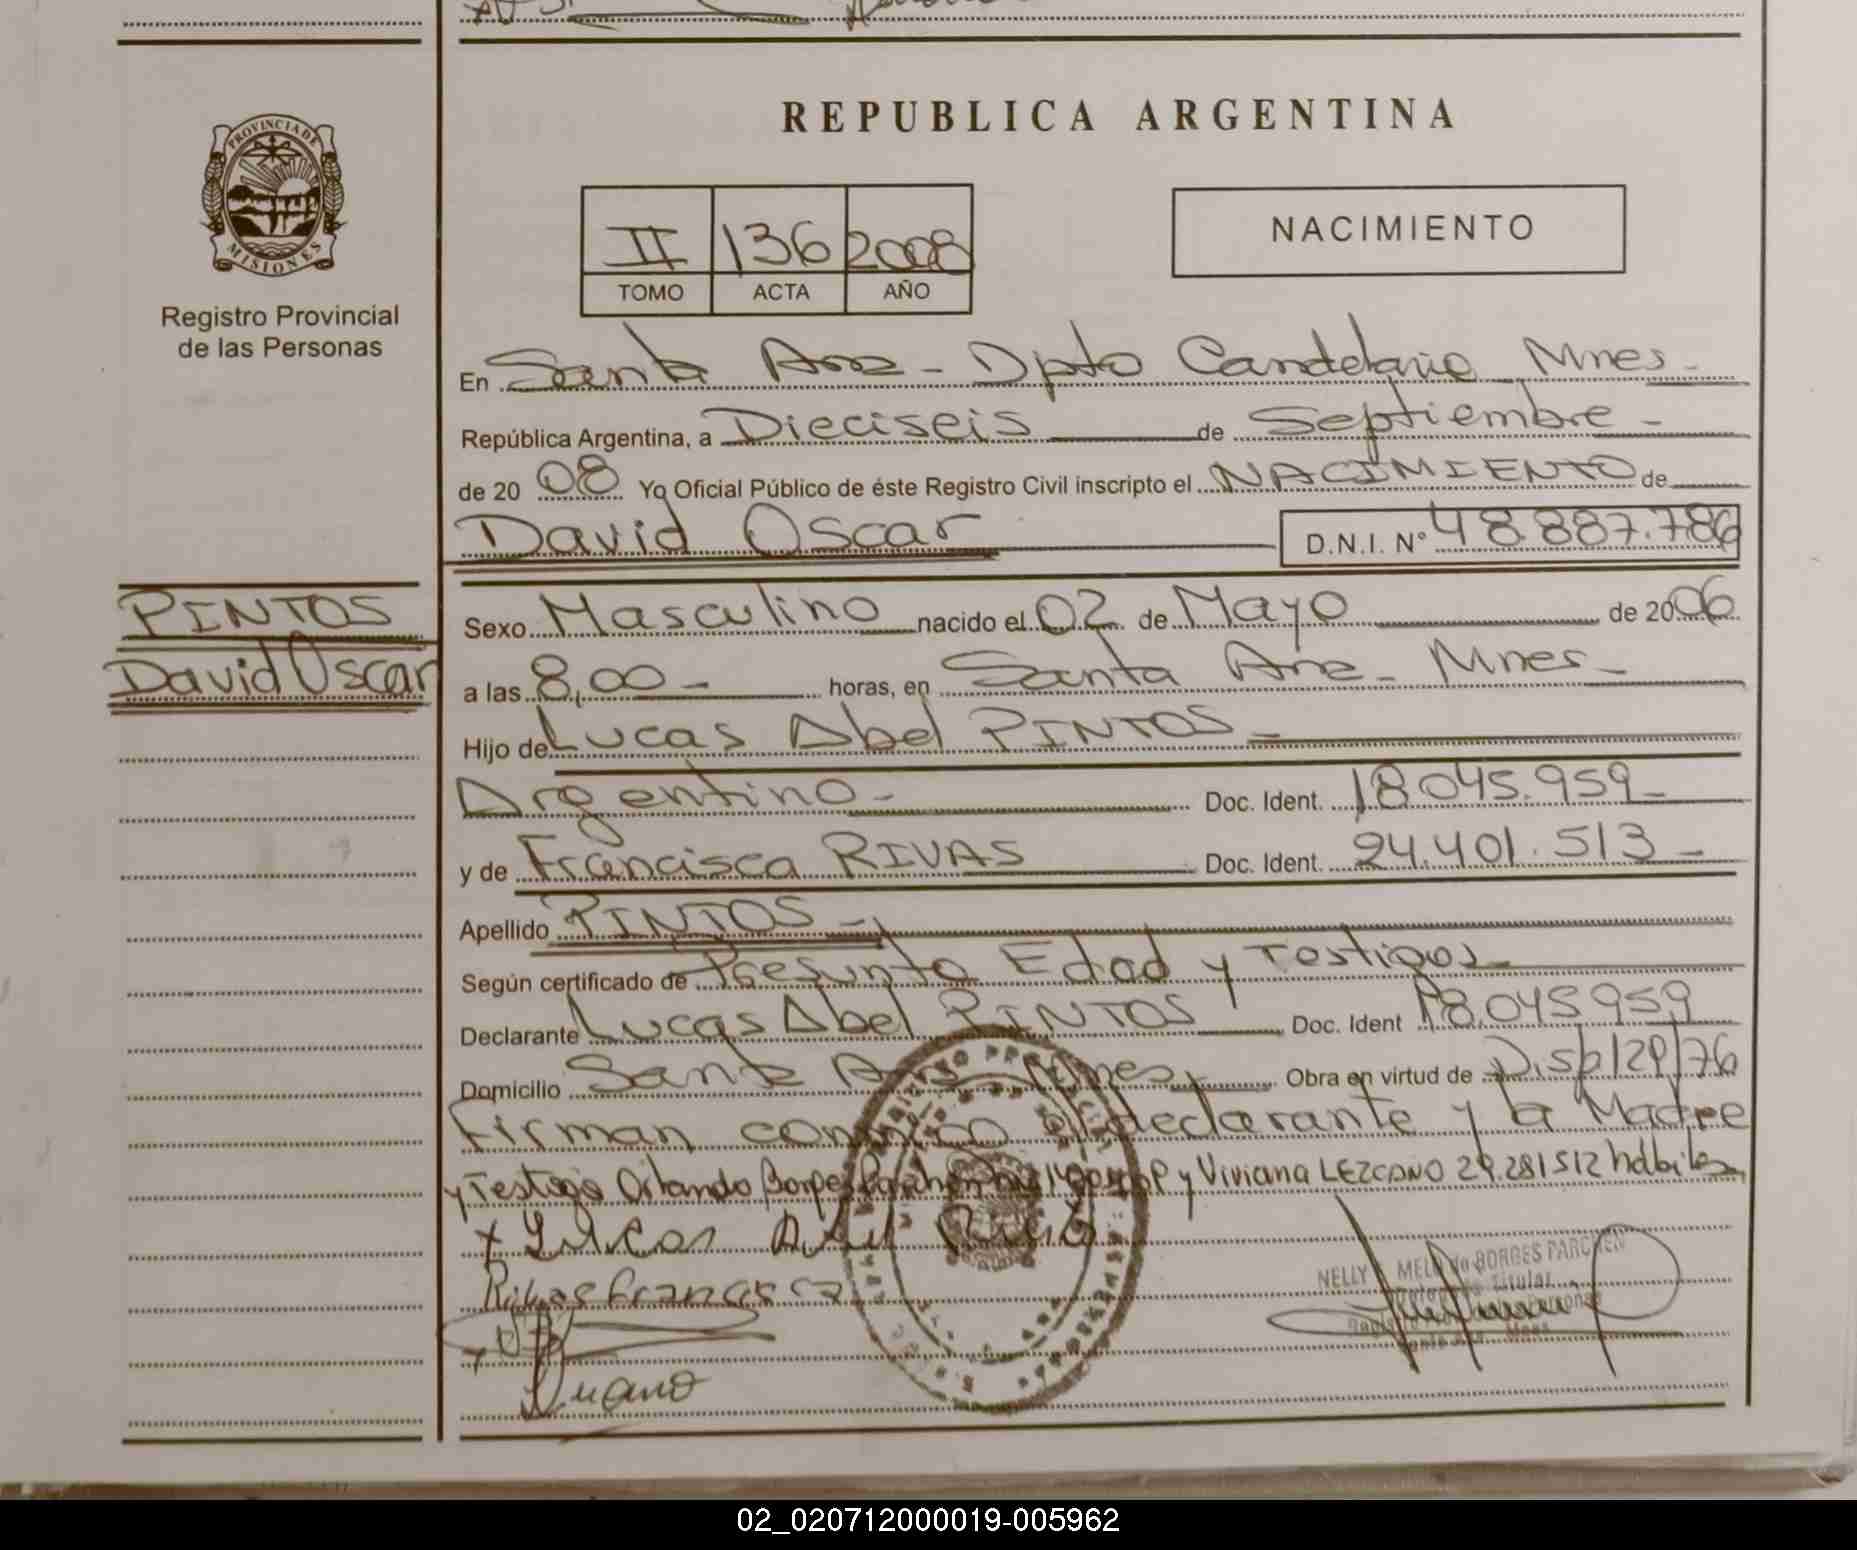 REPUBLICA ARGENTINA
PROVINCIA DE
MISIONES
Registro Provincial
de las Personas
II 136 2008
TOMO ACTA AÑO
NACIMIENTO
En Santa Ana - Dpto Candelaria Mnes -
República Argentina, a Dieciseis de Septiembre -
de 20 08 Yo Oficial Público de éste Registro Civil inscripto el NACIMIENTO de
David Oscar D.N.I. N° 48.887.786
PINTOS
David Oscar
Sexo Masculino nacido el 02 de Mayo de 2006
a las 8,00 - horas, en Santa Ana - Mnes -
Hijo de Lucas Abel PINTOS -
Argentino - Doc. Ident. 18.045.959 -
y de Francisca RIVAS Doc. Ident. 24.401.513 -
Apellido PINTOS -
Según certificado de Presunta Edad y Testigos
Declarante Lucas Abel PINTOS Doc. Ident 18.045959
Domicilio Santa Ana Mnes, Obra en virtud de Disp/29/76
Firman conmigo el declarante y la Madre
y Testigo Orlando Borges Parchen y Viviana LEZCANO 29.281512 hábiles
x Lucas Abel
Rivas Francisca
NELLY MELO de BORGES PARCHEN
Titular
02_020712000019-005962